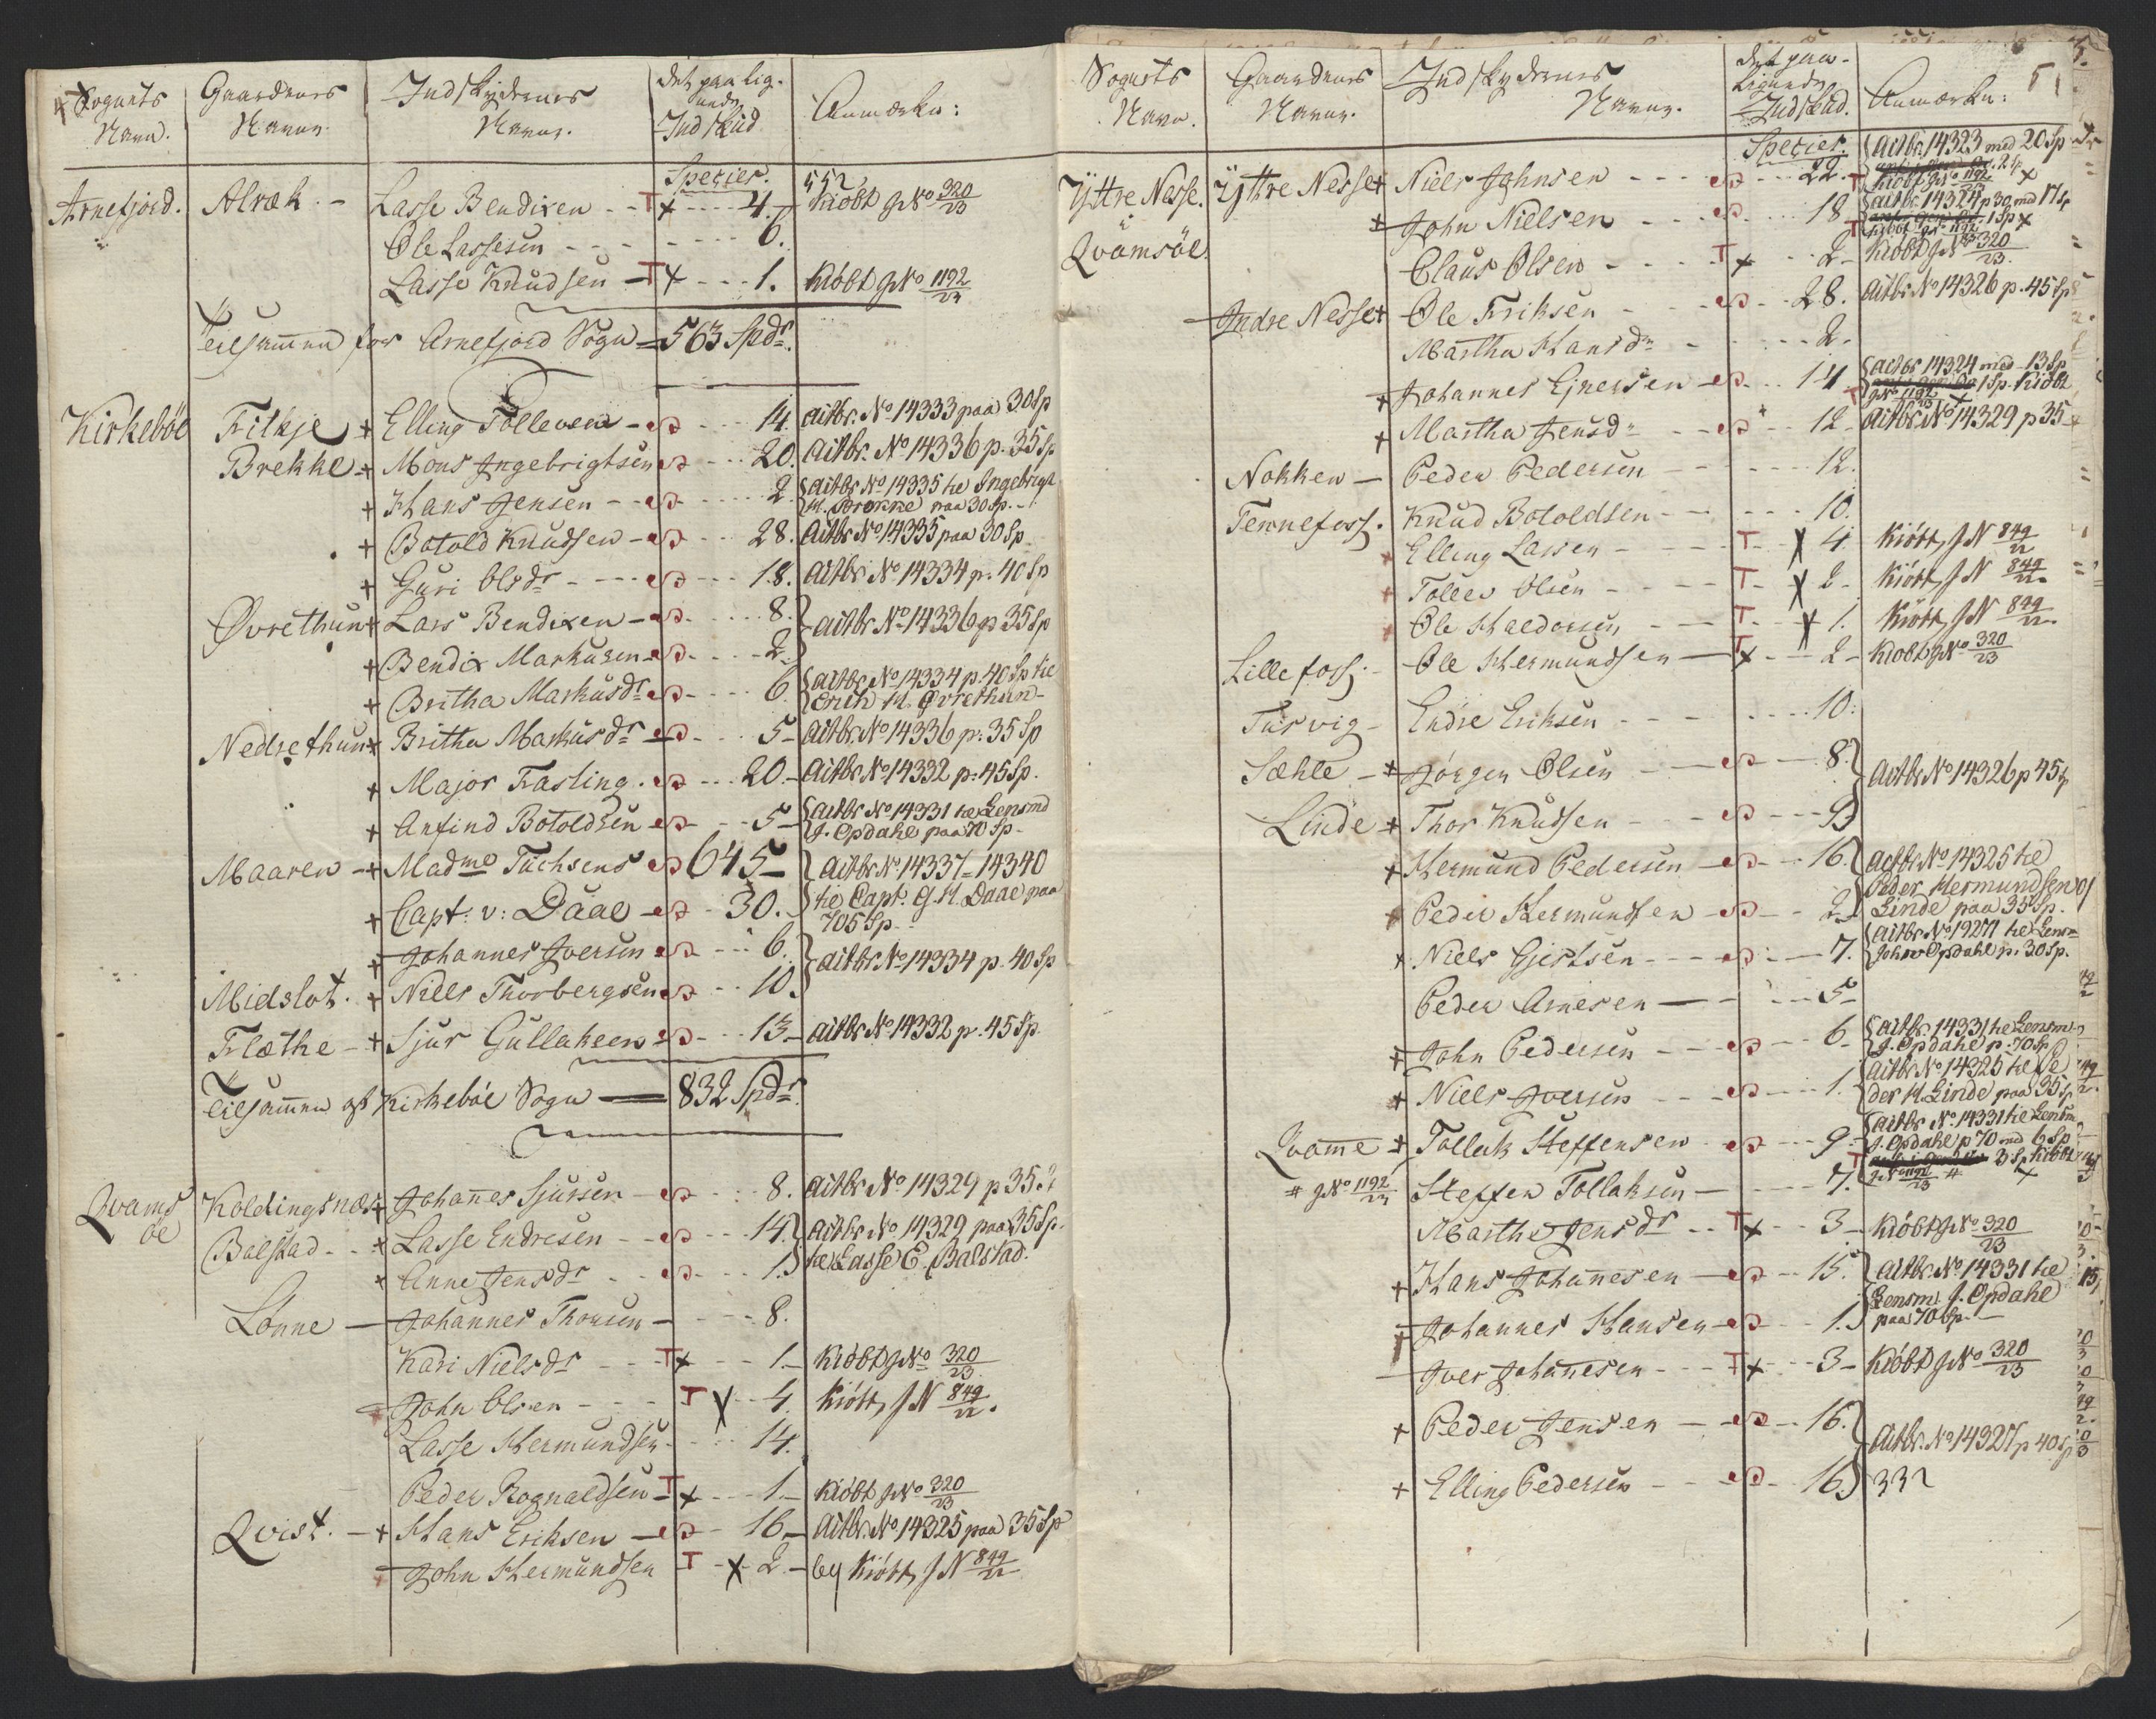 4 Sognets Navn. Gaardenes Navne. Indskydernes Navne. Det paalig- ende Indskud Anmærkn:
Species. 552
Arnefjord. Alræk. - Lasse Bendixen - - T x - - - 4. - Kiöbt JNo 320/23
Ole Lassesen - - - - - - - 6.
Lasse Knudsen - T x - - - 1. Kiöbt JNo 1192/23
Tilsammen for Arnefjord Sogn = 563 Spdr.
Kirkebóe Filkje + Elling Tolleven - - - - 14. aitbr. No 14333 paa 30 Sp
Brekke - + Mons Ingebrigtsen - - - 20. aitbr. No 14336 p. 35 Sp
+ Hans Jensen - - - - - - 2. { aitbr No 14335 til Ingebrigt
H. Brekke paa 30 Sp. -
+ Botold Knudsen - - - - 28. aitbr No 14335 paa 30 Sp
+ Guri Olsdr - - - - - - 18. aitbr No 14334 p. 40 Sp
Øvrethun + Lars Bendixen - - - - 8. } aitbr No 14336 p 35 Sp
+ Bendix Markusen - - - - 2.
+ Britha Markusdr - - - - 6 { aitbr No 14334 p. 40 Sp til
Erich H. Øvrethun -
Nedrethun + Britha Markusdr - - - 5 - aitbr. No 14336 p: 35 Sp
+ Major Fasting. - - - 20. - aitbr No 14332 p: 45 Sp.
+ Anfind Botoldsen - - - 5 - { aitbr No 14331 til Lensmd
J. Opdahl paa 70 Sp -
Maaren - + Madme Tuchsens 645 - } aitbr No 14337 - 14340
+ Capt: v: Daae - - 30. til Capt. G. H. Daae paa
705 Sp. -
+ Johannes Iversen - - - 6. } aitbr No 14334 p. 40 Sp
Midslot. + Niels Thorbergsen - - 10.
Flæthe - + Sjur Gullaksen - - - 13 - aitbr No 14332 p. 45 Sp
Tilsammen af Kirkebóe Sogn — 832 Spdr.
Qvams óe Koldingsnæs + Johannes Sjursen - - - 8. aitbr No 14329 p 35 Sp
Balstad - - + Lasse Endresen - - - 14. } aitbr No 14329 paa 35 Sp.
+ Anne Jensdr - - - - 1. til Lasse E. Balstad.
Lónne — Johannes Thorsen - - - - 8.
Kari Nielsdr - - - T x - - 1. - Kiöbt JNo 320/23
John Olsen - - - - T x - - 4. Kiöbt, JN 849/22.
Lasse Hermundsen - - - 14.
Peder Rognaldsen - T x - - - 1. - Kiöbt JNo 320/23
Qvist. - + Hans Eriksen - - - 16 - aitbr No 14325 paa 35 Sp
John Hermundsen T - x - 2. - Kiöbt, JN 849/22
Sognets Navn. Gaardenes Navne. Indskydernes Navne. Det paa- liggende Indskud. Anmærkn: 5
Species.
Yttre Nesse. i Qvamsóe. Yttre Nesse + Niels Johnsen - - - - - 22. { aitbr. 14323 med 20 Sp
Kiöbt JNo 1192 x
+ John Nielsen - - - - - 18 { aitbr. 14324 p 30 med 17 Sp
1 Sp x
Kiöbt JNo 1192
Claus Olsen - - - - T x - - 2 - Kiöbt JNo 320/23.
Indre Nesse + Ole Eriksen - - - - 28. aitbr No 14326 p. 45 Sp
Martha Hansdr - - - - - 2.
+ Johannes Ejnersen - - - 14 { aitbr 14324 med 13 Sp
1 Sp. Kiöbt
JNo 1192/23 x
+ Martha Jensdr - - - - 12 - aitbr. No 14329 p 35 -
Nokken — Peder Pedersen - - - - - - 12.
Tennefoss. Knud Botoldsen - - - - - - 10.
Elling Larsen - - - - T - - x 4. Kiöbt, JN 849/22
Tollev Olsen - - - - T - - x 2 - Kiöbt, JN 849/22.
Ole Haldorsen - - - T - - x 1. Kiöbt, JN 849/22.
Lillefoss. - Ole Hermundsen — T x - - 2 - Kiöbt JNo 320/23
Turvig - Endre Eriksen - - - - - - 10.
Sæhle - + Jörgen Olsen - - - - 8. } aitbr No 14326 p 45 Sp
Linde + Thor Knudsen - - - - -
+ Hermund Pedersen - - - 16. } aitbr No 14325 til
Peder Hermundsen - - - 2. Peder Hermundsen
Linde paa 35 Sp.
+ Niels Gjertsen - - - - 7. { aitbr No 19271 til Lensm
John Opdahl p. 30 Sp.
Peder Arnesen — - - - - 5 -
+ John Pedersen - - - - 6 - { aitbr. 14331 til Lensm
J. Opdahl p. 70 Sp
+ Niels Iversen - - - - - 1. { aitbr No 14325 til Pe
der H. Linde paa 35 Sp
Qvamme + Tollak Steffensen - - - 9 - { aitbr. No 14331 til Lensm.
J. Opdahl p 70 med 6 Sp
3 Sp. Kiöbt
# JNo 1192/23 Steffen Tollaksen — - - - 7. JNo 1192/23 # x
Marthe Jensdr - - T x - - 3 - Kiöbt JNo 320/23
+ Hans Johannesen - - - 15. } aitbr. No 14331 til
Johannes Hansen - - - 1. Lensm. J. Opdahl
paa 70 Sp. —
Iver Johannesen - - - T x - - - 3 - Kiöbt JNo 320/23
+ Peder Jensen - - - 16. } aitbr. No 14327 p 40 Sp
+ Elling Pedersen - - - 16 332